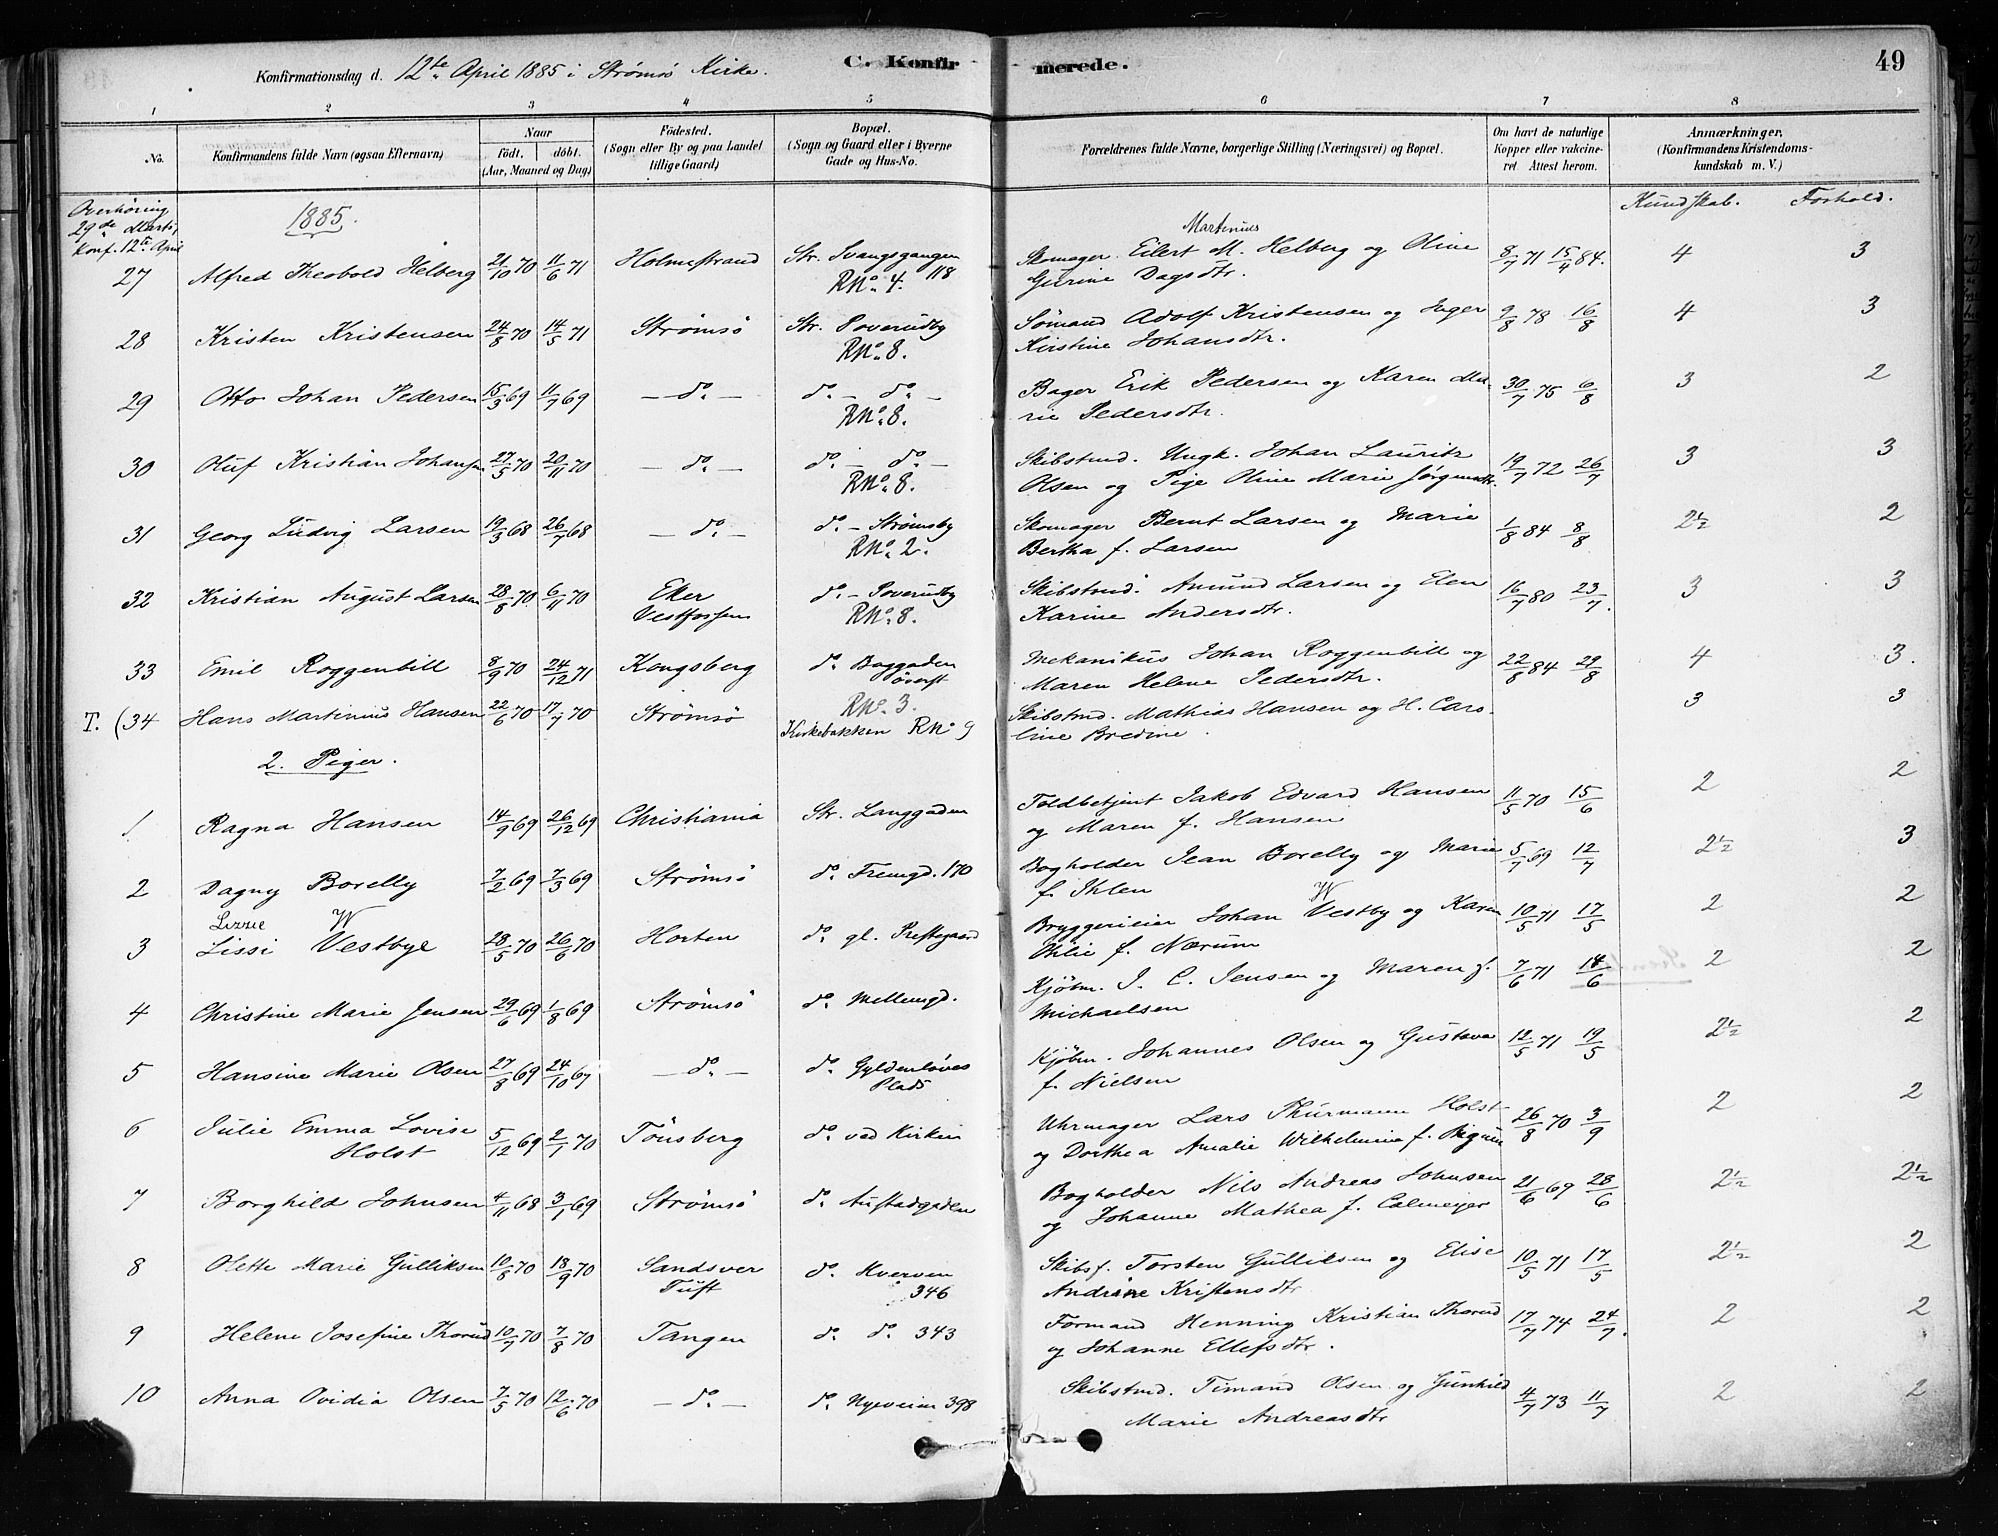 Konfirmationsdag d. 12te April 1885 i Strømsø Kirke. C. Konfirmerede. 49
1 2 3 4 5 6 7 8
No. Konfirmandens fulde Navn (ogsaa Efternavn) Naar født. døbt. (Aar, Maaned og Dag) Födested. (Sogn eller By og paa Landet tillige Gaard) Bopæl. (Sogn og Gaard eller i Byerne Gade og Hus-No. Forældrenes fulde Navne, borgerlige Stilling (Næringsvei) og Bopæl. Om havt de naturlige Kopper eller vakcineret Attest herom. Anmærkninger, (Konfirmandens Kristendomskundskab m. V.)
Overhöring 29de Marts, Konf. 12te April
1885.
Kundskab. Forhold.
27 Alfred Theobold Helberg 21/10 70 11/6 71 Holmestrand Str. Svangsgangen RNo. 4. 118 Skomager Eilert M. Martinius Helberg og Oline Gurine Dagsdtr. 8/7 71 15/4 84. 4 3
28 Kristen Kristensen 24/8 70 14/5 71 Strömsö Str. Soverudby RNo. 8. Sømand Adolf Kristensen og Inger Kirstine Johansdtr. 9/8 78 16/8 4 3
29 Otto Johan Pedersen 15/3 69 11/7 69 — do — do. — do. — RNo. 8. Bager Erik Pedersen og Karen Marie Pedersdtr. 30/7 75 6/8 3 2
30 Oluf Kristian Johansen 27/5 70 20/11 70 — do. — do. — do. — RNo. 8. Skibstmd. Ungk. Johan Lauritz Olsen og Pige Oline Marie Jörgensdtr. 19/7 72 26/7 3 3
31 Georg Ludvig Larsen 19/3 68 26/7 68 — do. — do. — Strømsby RNo. 2. Skomager Bernt Larsen og Marie Bertha f. Larsen 1/8 84 8/8 2½ 2
32 Kristian August Larsen 28/8 70 6/11 70 Eker Vestfossen do. — Soverudby RNo. 8. Skibstmd. Amund Larsen og Elen Karine Andersdtr. 16/7 80 23/7. 3 3
33 Emil Roggenbill 8/9 70 24/12 71 Kongsberg do. Baggaden överst RNo. 3. Mekanikus Johan Roggenbill og Maren Helene Pedersdtr. 22/8 84 29/8 4 3.
T. (34 Hans Martinius Hansen 22/6 70 17/7 70 Strömsö Kirkebakken RNo 9 Skibstmd. Mathias Hansen og H. Caroline Bredine. 3 3
2. Piger.
1. Ragna Hansen 14/9 69 26/12 69 Christiania Str. Langgaden Toldbetjent Jakob Edvard Hansen og Maren f. Hansen 11/5 70 15/6 2 2
2 Dagny Borelly 7/2 69 7/3 69 Strömsö do. Fremgd. 170 Bogholder Jean Borelly og Marie f. Ihlen 5/7 69 12/7 2½ 3
Lizzie W W
3 Lissi Vestbye 28/5 70 26/6 70 Horten do. gl. Prestegaard Bryggerieier Johan Vestby og Karen Thilie f. Nærum 10/5 71 17/5 2 2
4 Christine Marie Jensen 29/6 69 1/8 69 Strömsö do. Mellemgd. Kjøbm. J. C. Jensen og Maren f. Michaelsen 7/6 71 14/6 2 2
5 Hansine Marie Olsen 27/8 69 24/10 67 — do. — do. Gyldenløves Plads Kjøbm. Johannes Olsen og Gustava f. Nielsen 12/5 71 19/5 2½ 2
6 Julie Emma Lovise Holst 5/12 69 2/1 70 Tönsberg do. ved Kirken Uhrmager Lars Thurmann Holst og Dorthea Amalie Wilhelmine f. 26/8 70 3/9 2 2
7 Borghild Johnsen 4/11 68 3/1 69 Strömsö do. Austadgaden Bogholder Nils Andreas Johnsen og Johanne Mathea f. Calmeyer 21/6 69 28/6 2½ 2½
8 Olette Marie Gulliksen 10/8 70 18/9 70 Sandsver Tuft do. Kverven 346 Skibsf. Torsten Gulliksen og Elise Andrine Kristensdtr 10/5 71 17/5 2½ 2
9 Helene Josefine Thorud 10/7 70 7/8 70 Tangen do. do. 343 Formand Henning Kristian Thorud og Johanne Ellefsdtr. 17/7 74 24/7. 2 2
10 Anna Ovidia Olsen 7/5 70 12/6 70 — do. — do. Nyeveien 398 Skibstmd. Timand Olsen og Gunhild Marie Andreasdtr 4/7 73 11/7 2 2